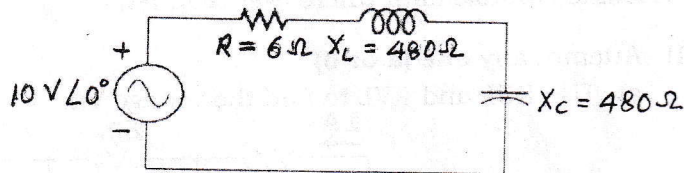 +
R = 6 Ω X_L = 480 Ω
10 V ∠0°
X_C = 480 Ω
−